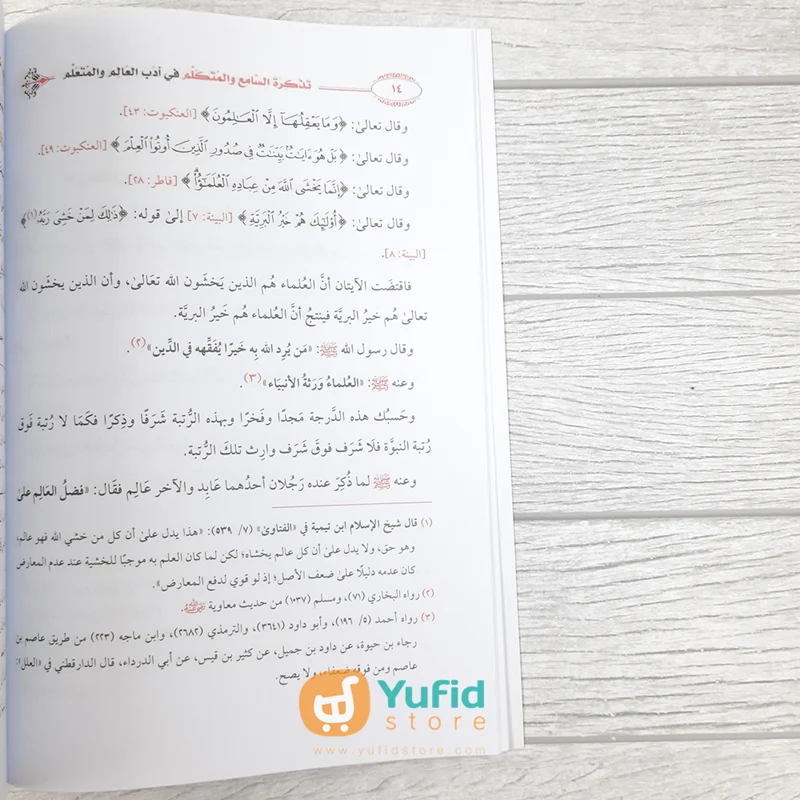 ١٤
تذكرة السامع والمتكلم في أدب العالم والمتعلم
وقال تعالىٰ: ﴿وَمَا يَعْقِلُهَآ إِلَّا ٱلْعَـٰلِمُونَ﴾ [العنكبوت: ٤٣].
وقال تعالىٰ: ﴿بَلْ هُوَ ءَايَـٰتٌۢ بَيِّنَـٰتٌ فِي صُدُورِ ٱلَّذِينَ أُوتُوا۟ ٱلْعِلْمَ﴾ [العنكبوت: ٤٩].
وقال تعالىٰ: ﴿إِنَّمَا يَخْشَى ٱللَّهَ مِنْ عِبَادِهِ ٱلْعُلَمَـٰٓؤُا۟﴾ [فاطر: ٢٨].
وقال تعالىٰ: ﴿أُو۟لَـٰٓئِكَ هُمْ خَيْرُ ٱلْبَرِيَّةِ﴾ [البينة: ٧] إلىٰ قوله: ﴿ذَٰلِكَ لِمَنْ خَشِيَ رَبَّهُۥ(١)﴾
[البينة: ٨].
فاقتضَت الآيتان أنَّ العُلماء هُم الذين يَخشَون الله تعَالىٰ، وأن الذين يخشَون الله
تعالىٰ هُم خيرُ البريَّة فينتجُ أنَّ العُلماء هُم خَيرُ البريَّة.
وقال رسول الله ﷺ: «مَن يُرِد الله بِه خَيرًا يُفَقِّهه في الدِّين»(٢).
وعنه ﷺ: «العُلماءُ وَرَثةُ الأنبيَاء»(٣).
وحَسبُك هذه الدَّرجة مَجدًا وفَخرًا وبهذه الرُّتبة شَرَفًا وذِكرًا فكَمَا لا رُتبة فَوق
رُتبة النبوَّة فلَا شَرَف فوقَ شَرَف وارِث تلكَ الرُّتبة.
وعنه ﷺ لما ذُكِرَ عنده رَجُلان أحدُهما عَابِد والآخر عَالِم فقَال: «فضلُ العَالِم علىٰ
(١) قال شيخ الإسلام ابن تيمية في «الفتاوىٰ» (٧/ ٥٣٩): «هذا يدل علىٰ أن كل من خشي الله فهو عالم،
وهو حق، ولا يدل علىٰ أن كل عالم يخشاه؛ لكن لما كان العلم به موجبًا للخشية عند عدم المعارض
كان عدمه دليلًا علىٰ ضعف الأصل؛ إذ لو قوي لدفع المعارض».
(٢) رواه البخاري (٧١)، ومسلم (١٠٣٧) من حديث معاوية رضي الله عنه.
(٣) رواه أحمد (٥/ ١٩٦)، وأبو داود (٣٦٤١)، والترمذي (٢٦٨٢)، وابن ماجه (٢٢٣) من طريق عاصم بن
رجاء بن حيوة، عن داود بن جميل، عن كثير بن قيس، عن أبي الدرداء، قال الدارقطني في «العلل»:
عاصم ومن فوقه ضعفاء، ولا يصح.
Yufid
store
www.yufidstore.com